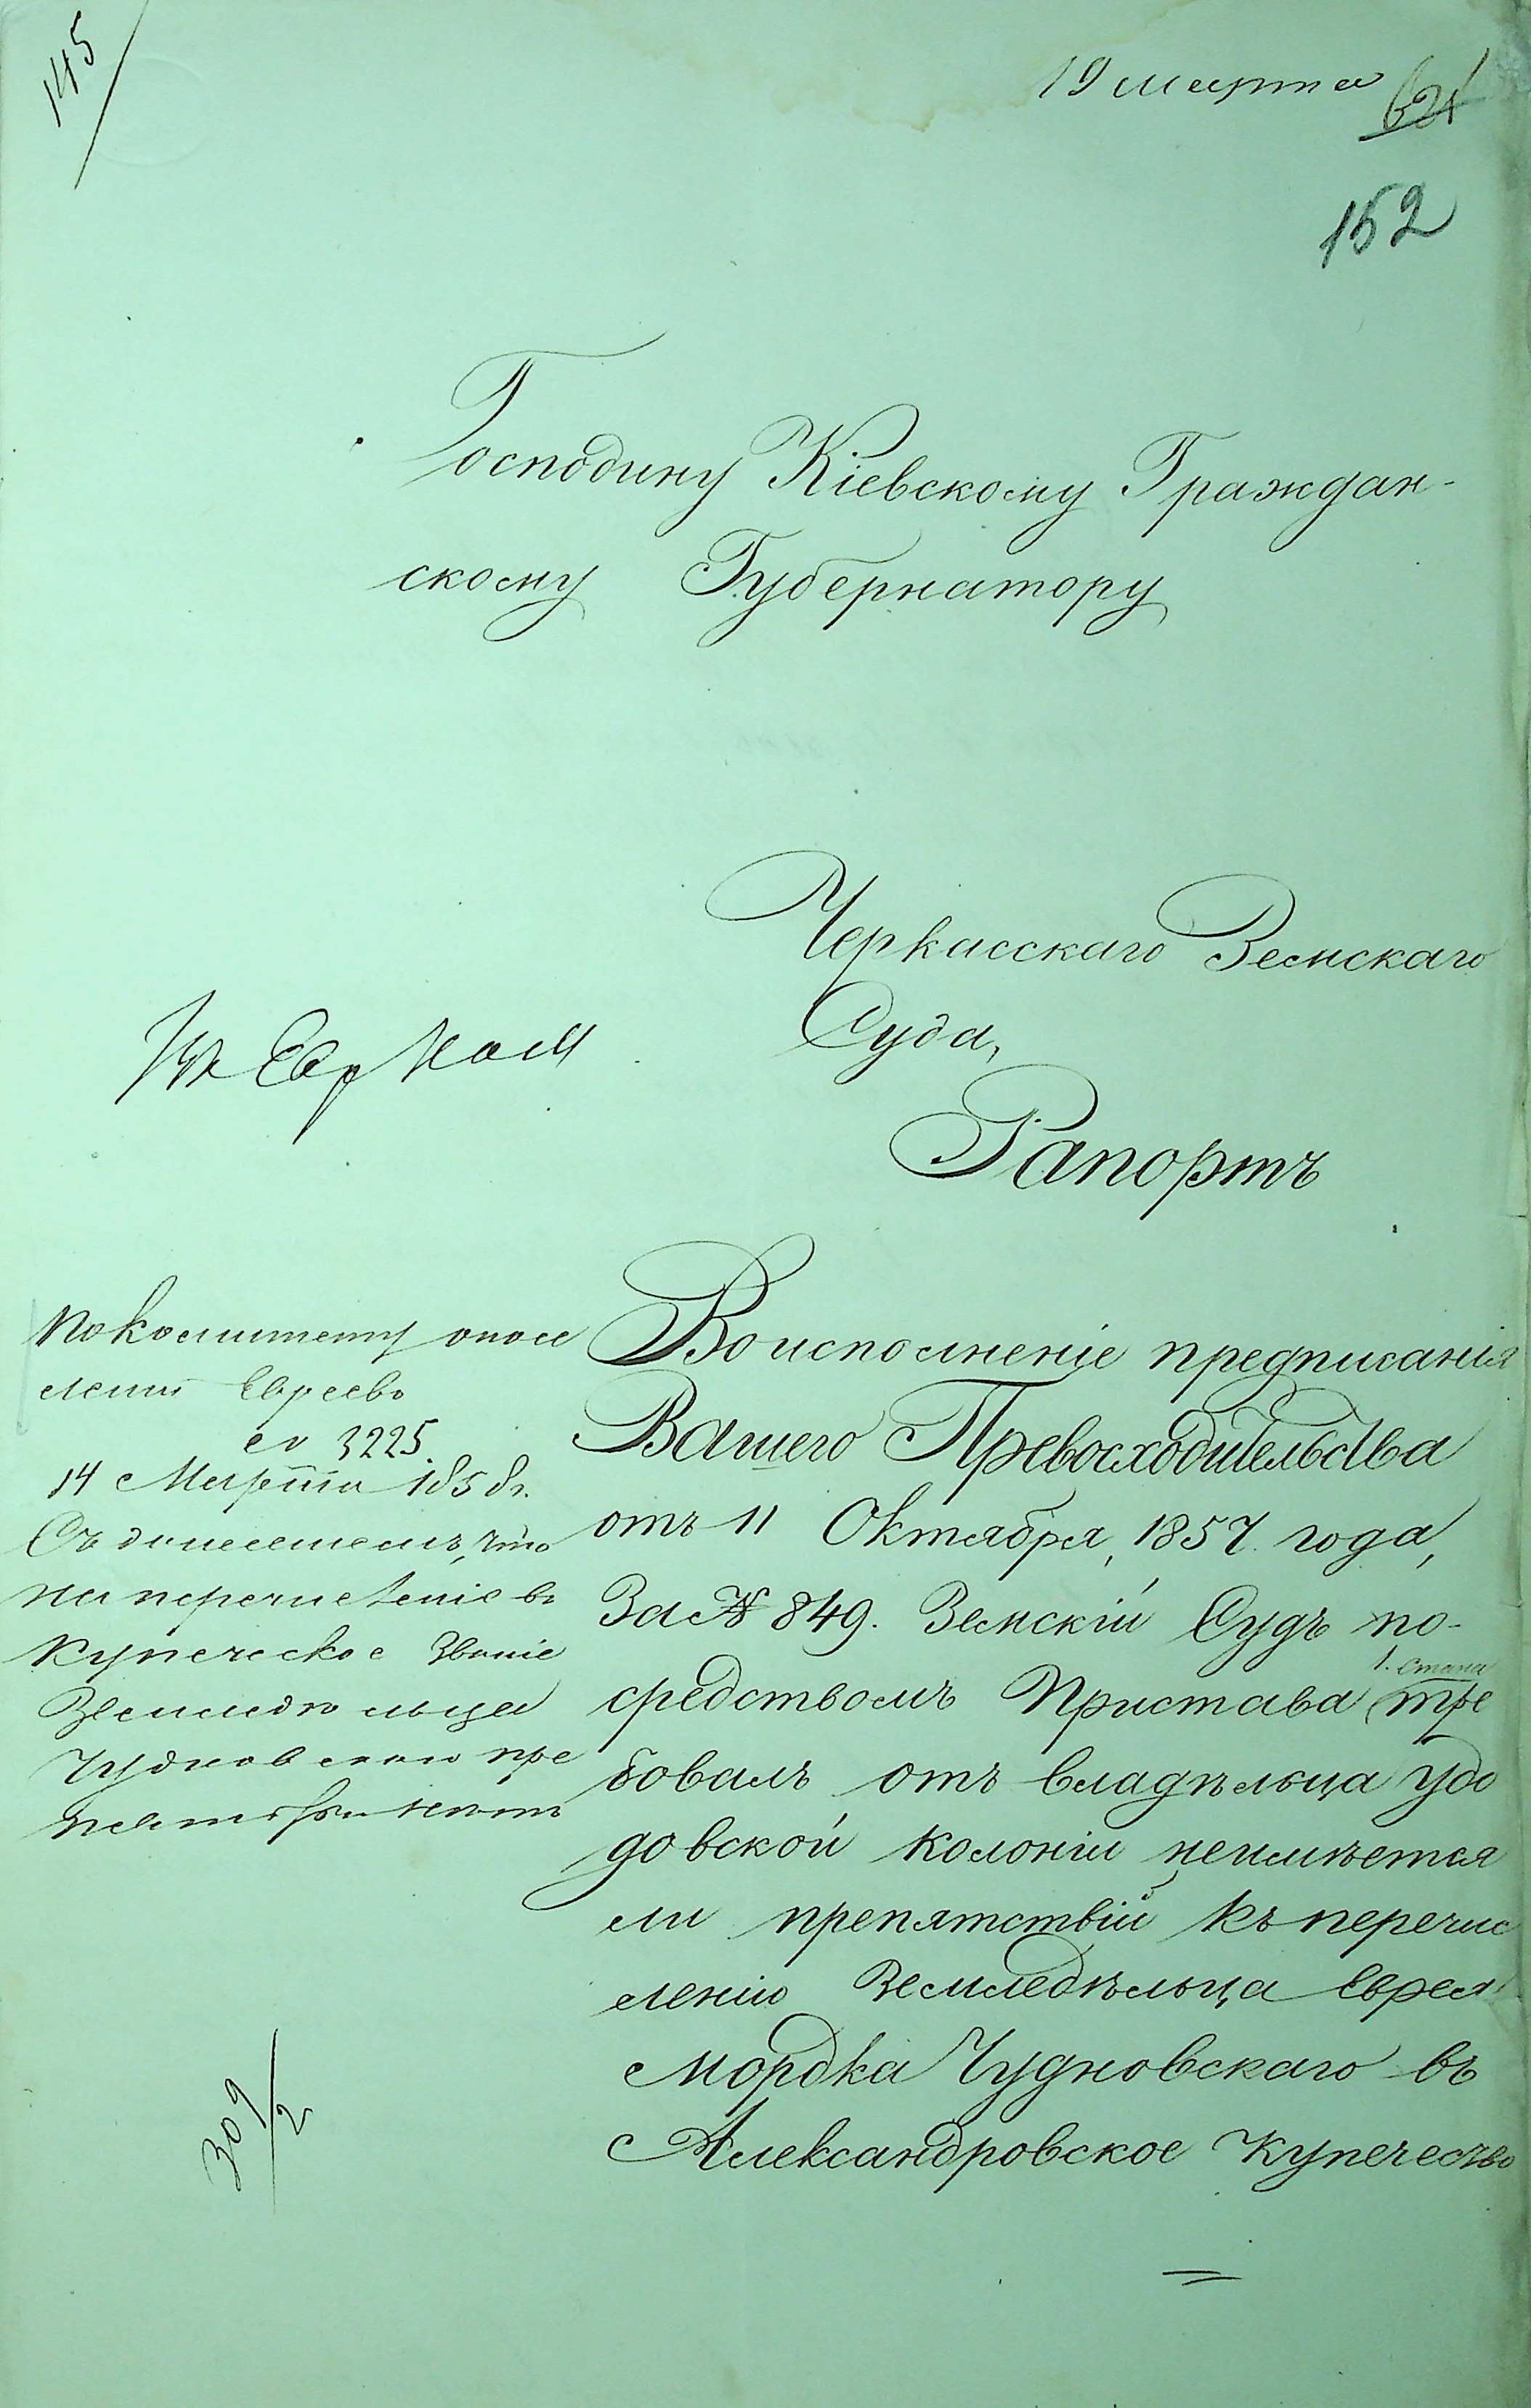 145
19 марта
621
152
Господину Кіевскому Граждан-
скому Губернатору
Черкасскаго Земскаго
Суда,
Рапортъ
Евр Ком
По комитету о посе
леніи Евреевъ
№ 3225.
14 Марта 1858 г.
Съ донесеніемъ, что
на перечисленіе въ
купеческое званіе
Земледѣльца
Чудновскаго пре
Во исполненіе предписанія
Вашего Превосходительства
отъ 11 Октября, 1857. года,
За № 849. Земскій Судъ по-
средствомъ Пристава 1. Стана тре
бовалъ отъ владѣльца Удо
довской колоніи неимѣется
ли препятствій къ перечис
ленію Земледѣльца Еврея
Мордка Чудновскаго въ
Александровское купечество
309/2